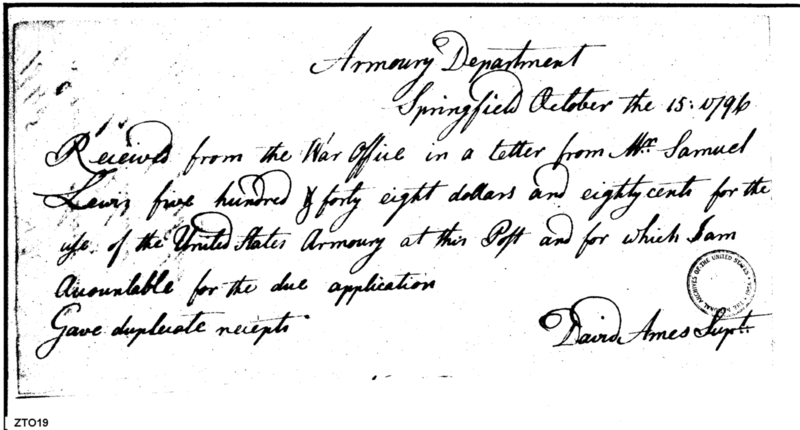 Armoury Department
Springfield October the 15: 1796
Received from the War Office in a letter from Mr. Samuel
Lewis five hundred & forty eight dollars and eighty cents for the
use of the United States Armoury at this Post and for which I am
Accountable for the due application
Gave duplicate reciepts
David Ames Supt.
ARCHIVES OF THE UNITED STATES
ZTO19